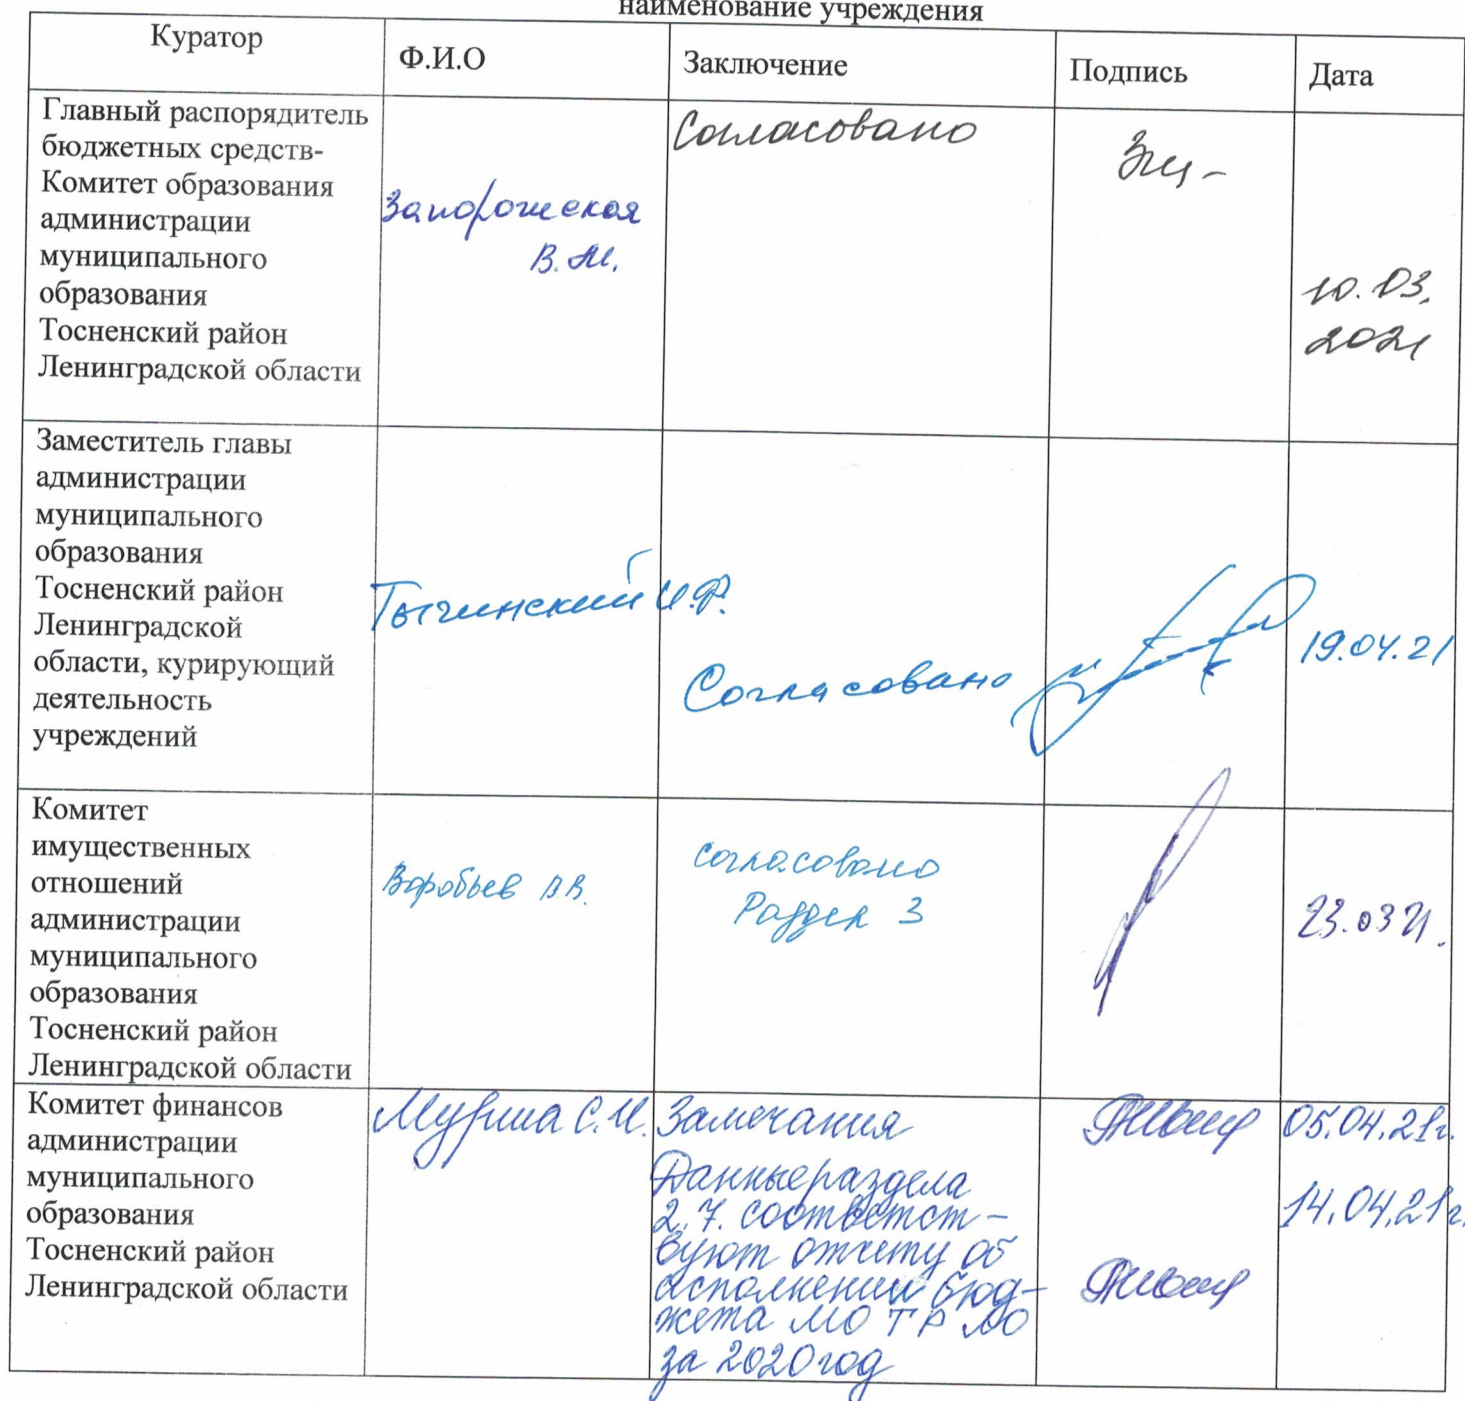 наименование учреждения
Куратор
Ф.И.О
Заключение
Подпись
Дата
Главный распорядитель
бюджетных средств-
Комитет образования
администрации
муниципального
образования
Тосненский район
Ленинградской области
Запорожская
В.М.
Согласовано
10.03.
2021
Заместитель главы
администрации
муниципального
образования
Тосненский район
Ленинградской
области, курирующий
деятельность
учреждений
Тычинский И.Ф.
Согласовано
19.04.21
Комитет
имущественных
отношений
администрации
муниципального
образования
Тосненский район
Ленинградской области
Воробьев В.В.
согласовано
Раздел 3
23.03 21.
Комитет финансов
администрации
муниципального
образования
Тосненский район
Ленинградской области
С.И.
Замечания
Данные раздела
2.7. соответст-
вуют отчету об
исполнении бюд-
жета МО ТР ЛО
за 2020 год
05.04.21г.
14.04.21г.